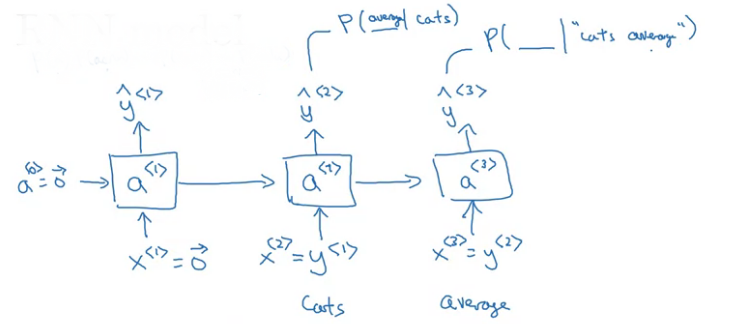 P(average | cats)
P( ___ | "cats average")
ŷ<1>
ŷ<2>
ŷ<3>
a<0>=0⃗
a<1>
a<2>
a<3>
x<1>=0⃗
x<2>=y<1>
x<3>=y<2>
Cats
average